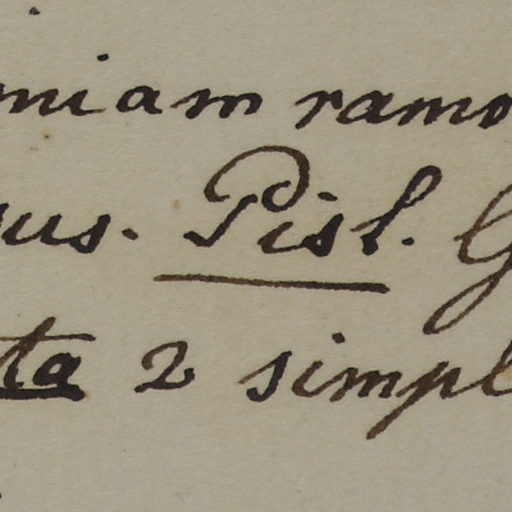 miam ramo
us. Pisl. G
ta 2 simpl